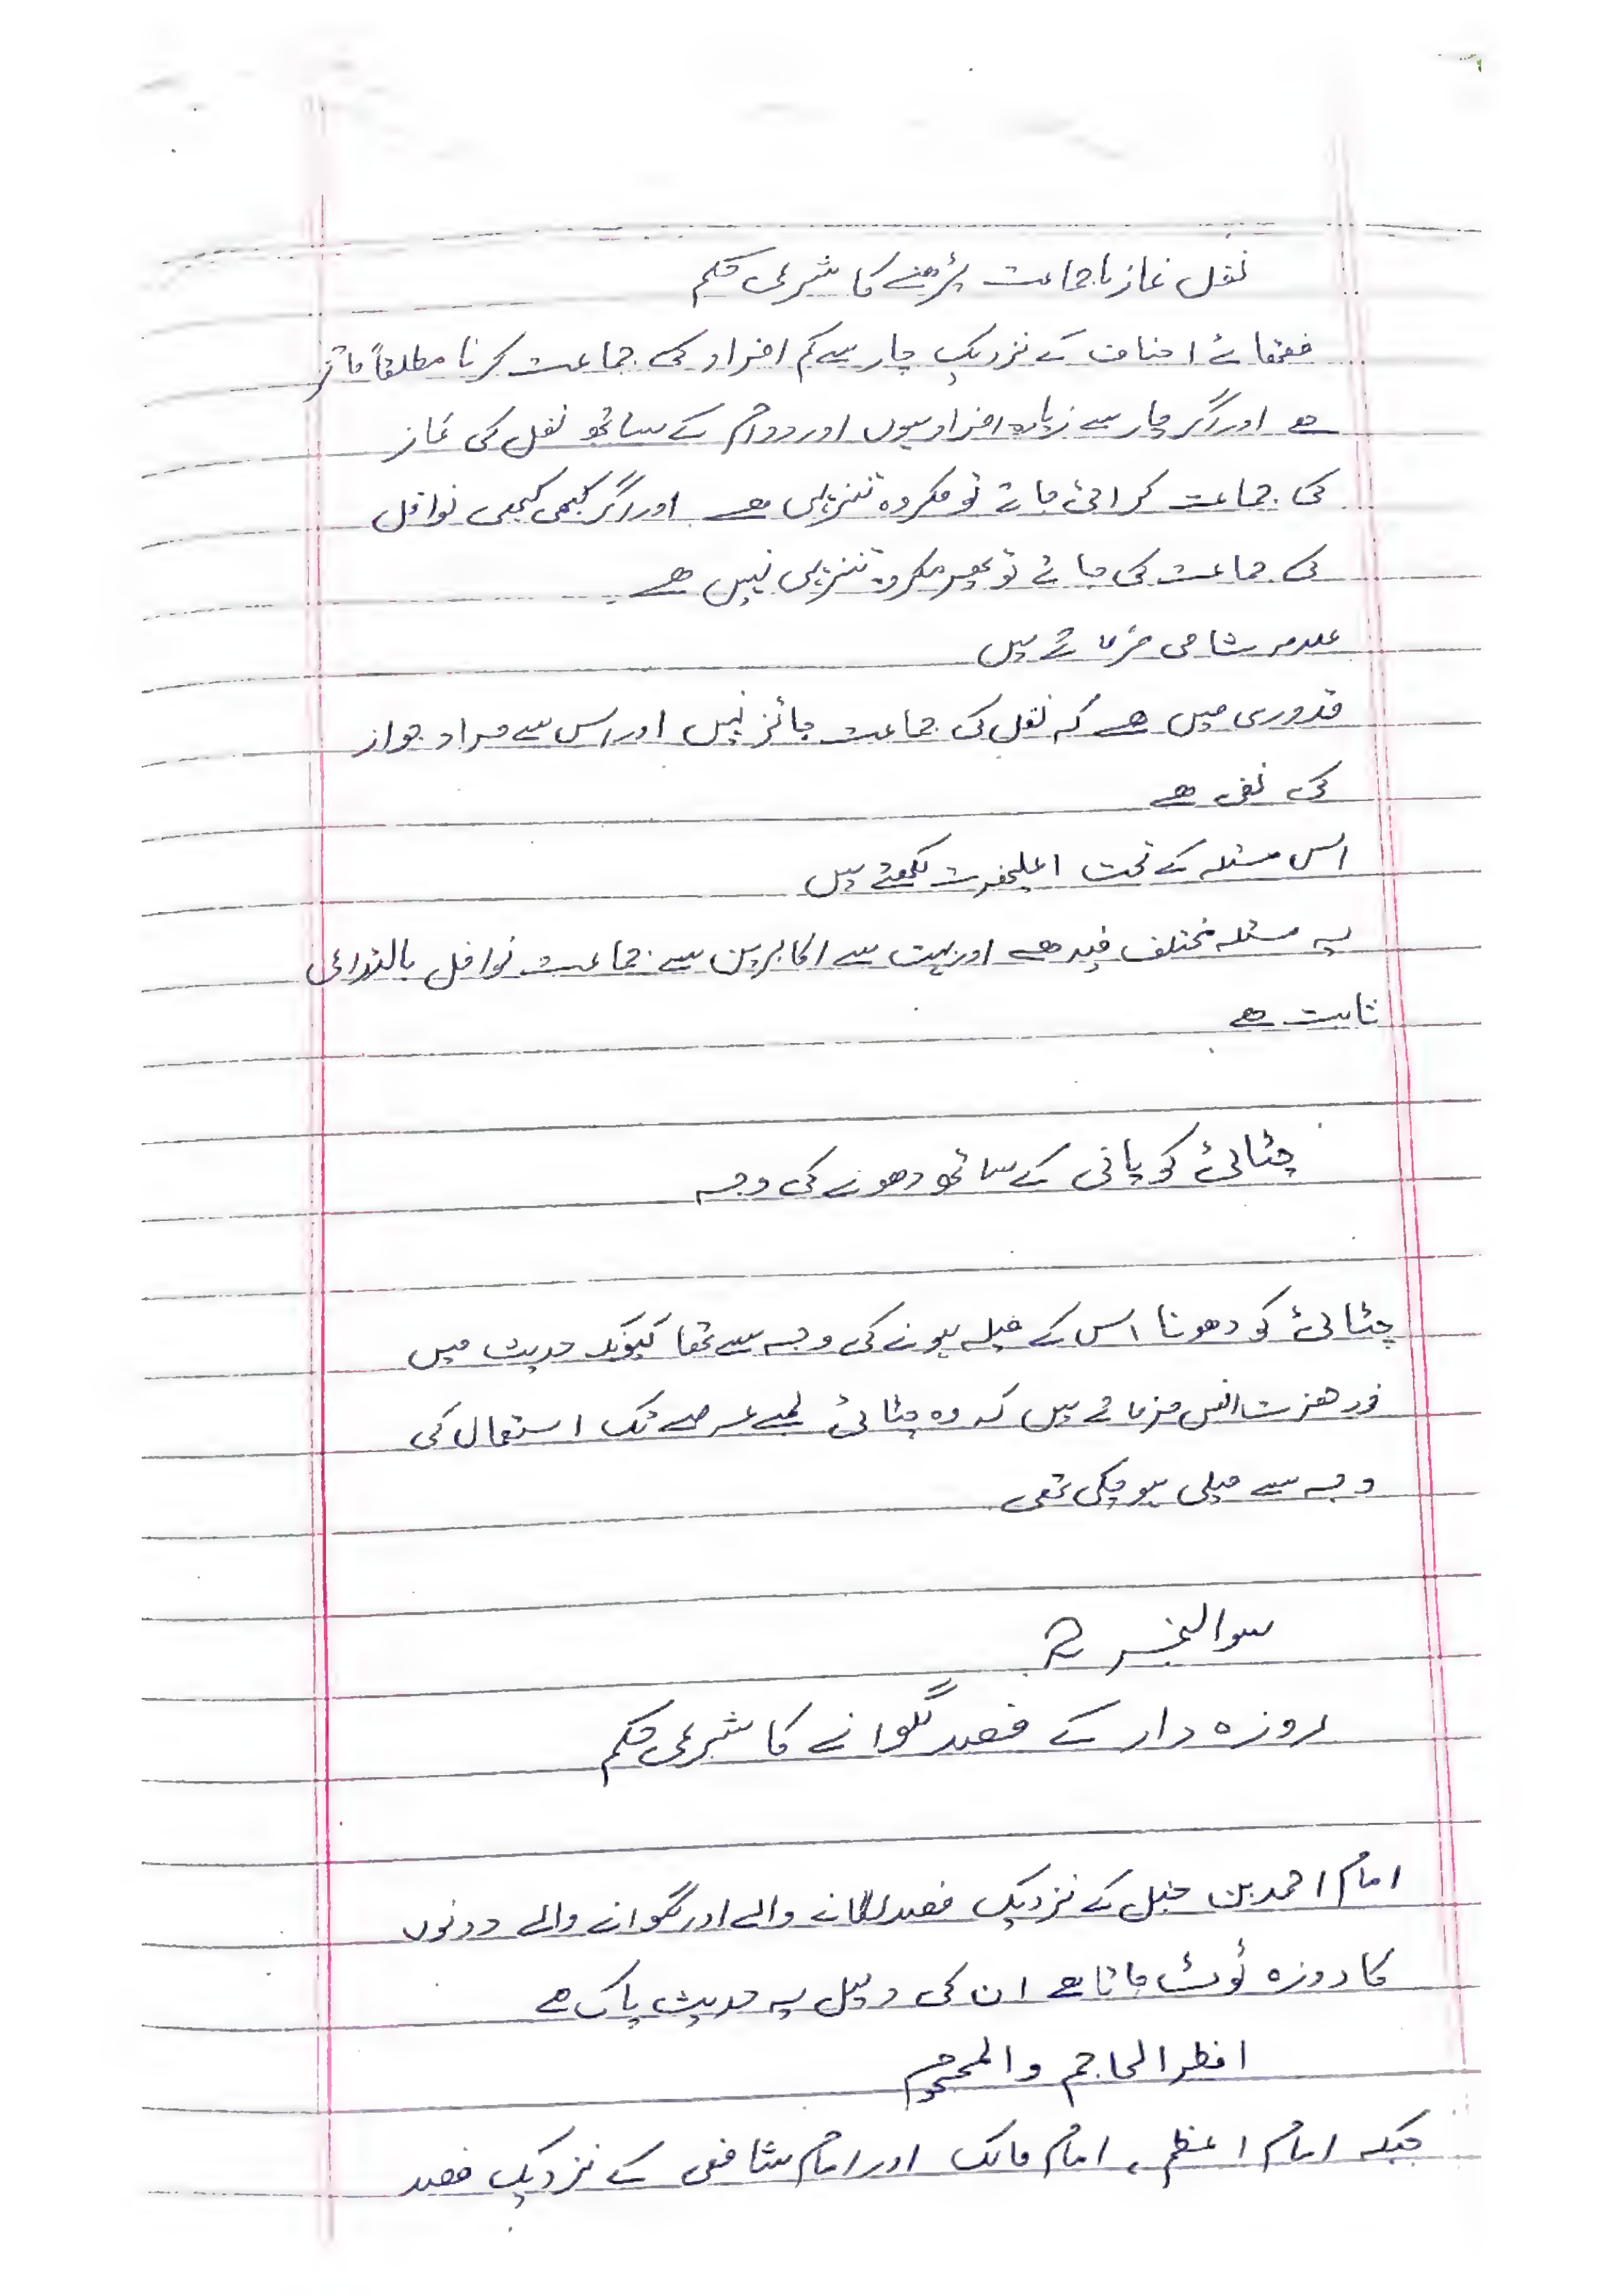 نفل نماز باجماعت پڑھنے کا شرعی حکم
فقہائے احناف کے نزدیک چار سے کم افراد کی جماعت کرنا مطلقاً جائز
ہے اور اگر چار سے زیادہ افراد ہوں اور دوام کے ساتھ نفل کی نماز
کی جماعت کرائی جائے تو مکروہ تنزیہی ہے اور اگر کبھی کبھی نوافل
کی جماعت کی جائے تو پھر مکروہ تنزیہی نہیں ہے
علامہ شامی فرماتے ہیں
قدوری میں ہے کہ نفل کی جماعت جائز نہیں اور اس سے مراد جواز
کی نفی ہے
اس مسئلہ کے تحت اعلیحضرت لکھتے ہیں
یہ مسئلہ مختلف فیہ ہے اور بہت سے اکابرین سے جماعت نوافل بالتداعی
ثابت ہے
چٹائی کو پانی کے ساتھ دھونے کی وجہ
چٹائی کو دھونا اس کے میلہ ہونے کی وجہ سے تھا کیونکہ حدیث میں
خود حضرت انس فرماتے ہیں کہ وہ چٹائی لمبے عرصے تک استعمال کی
وجہ سے میلی ہو چکی تھی
سوال نمبر 2
روزہ دار کے فصد لگوانے کا شرعی حکم
امام احمد بن حنبل کے نزدیک فصد لگانے والے اور لگوانے والے دونوں
کا روزہ ٹوٹ جاتا ہے ان کی دلیل یہ حدیث پاک ہے
افطر الحاجم والمحجوم
جبکہ امام اعظم، امام مالک اور امام شافعی کے نزدیک فصد